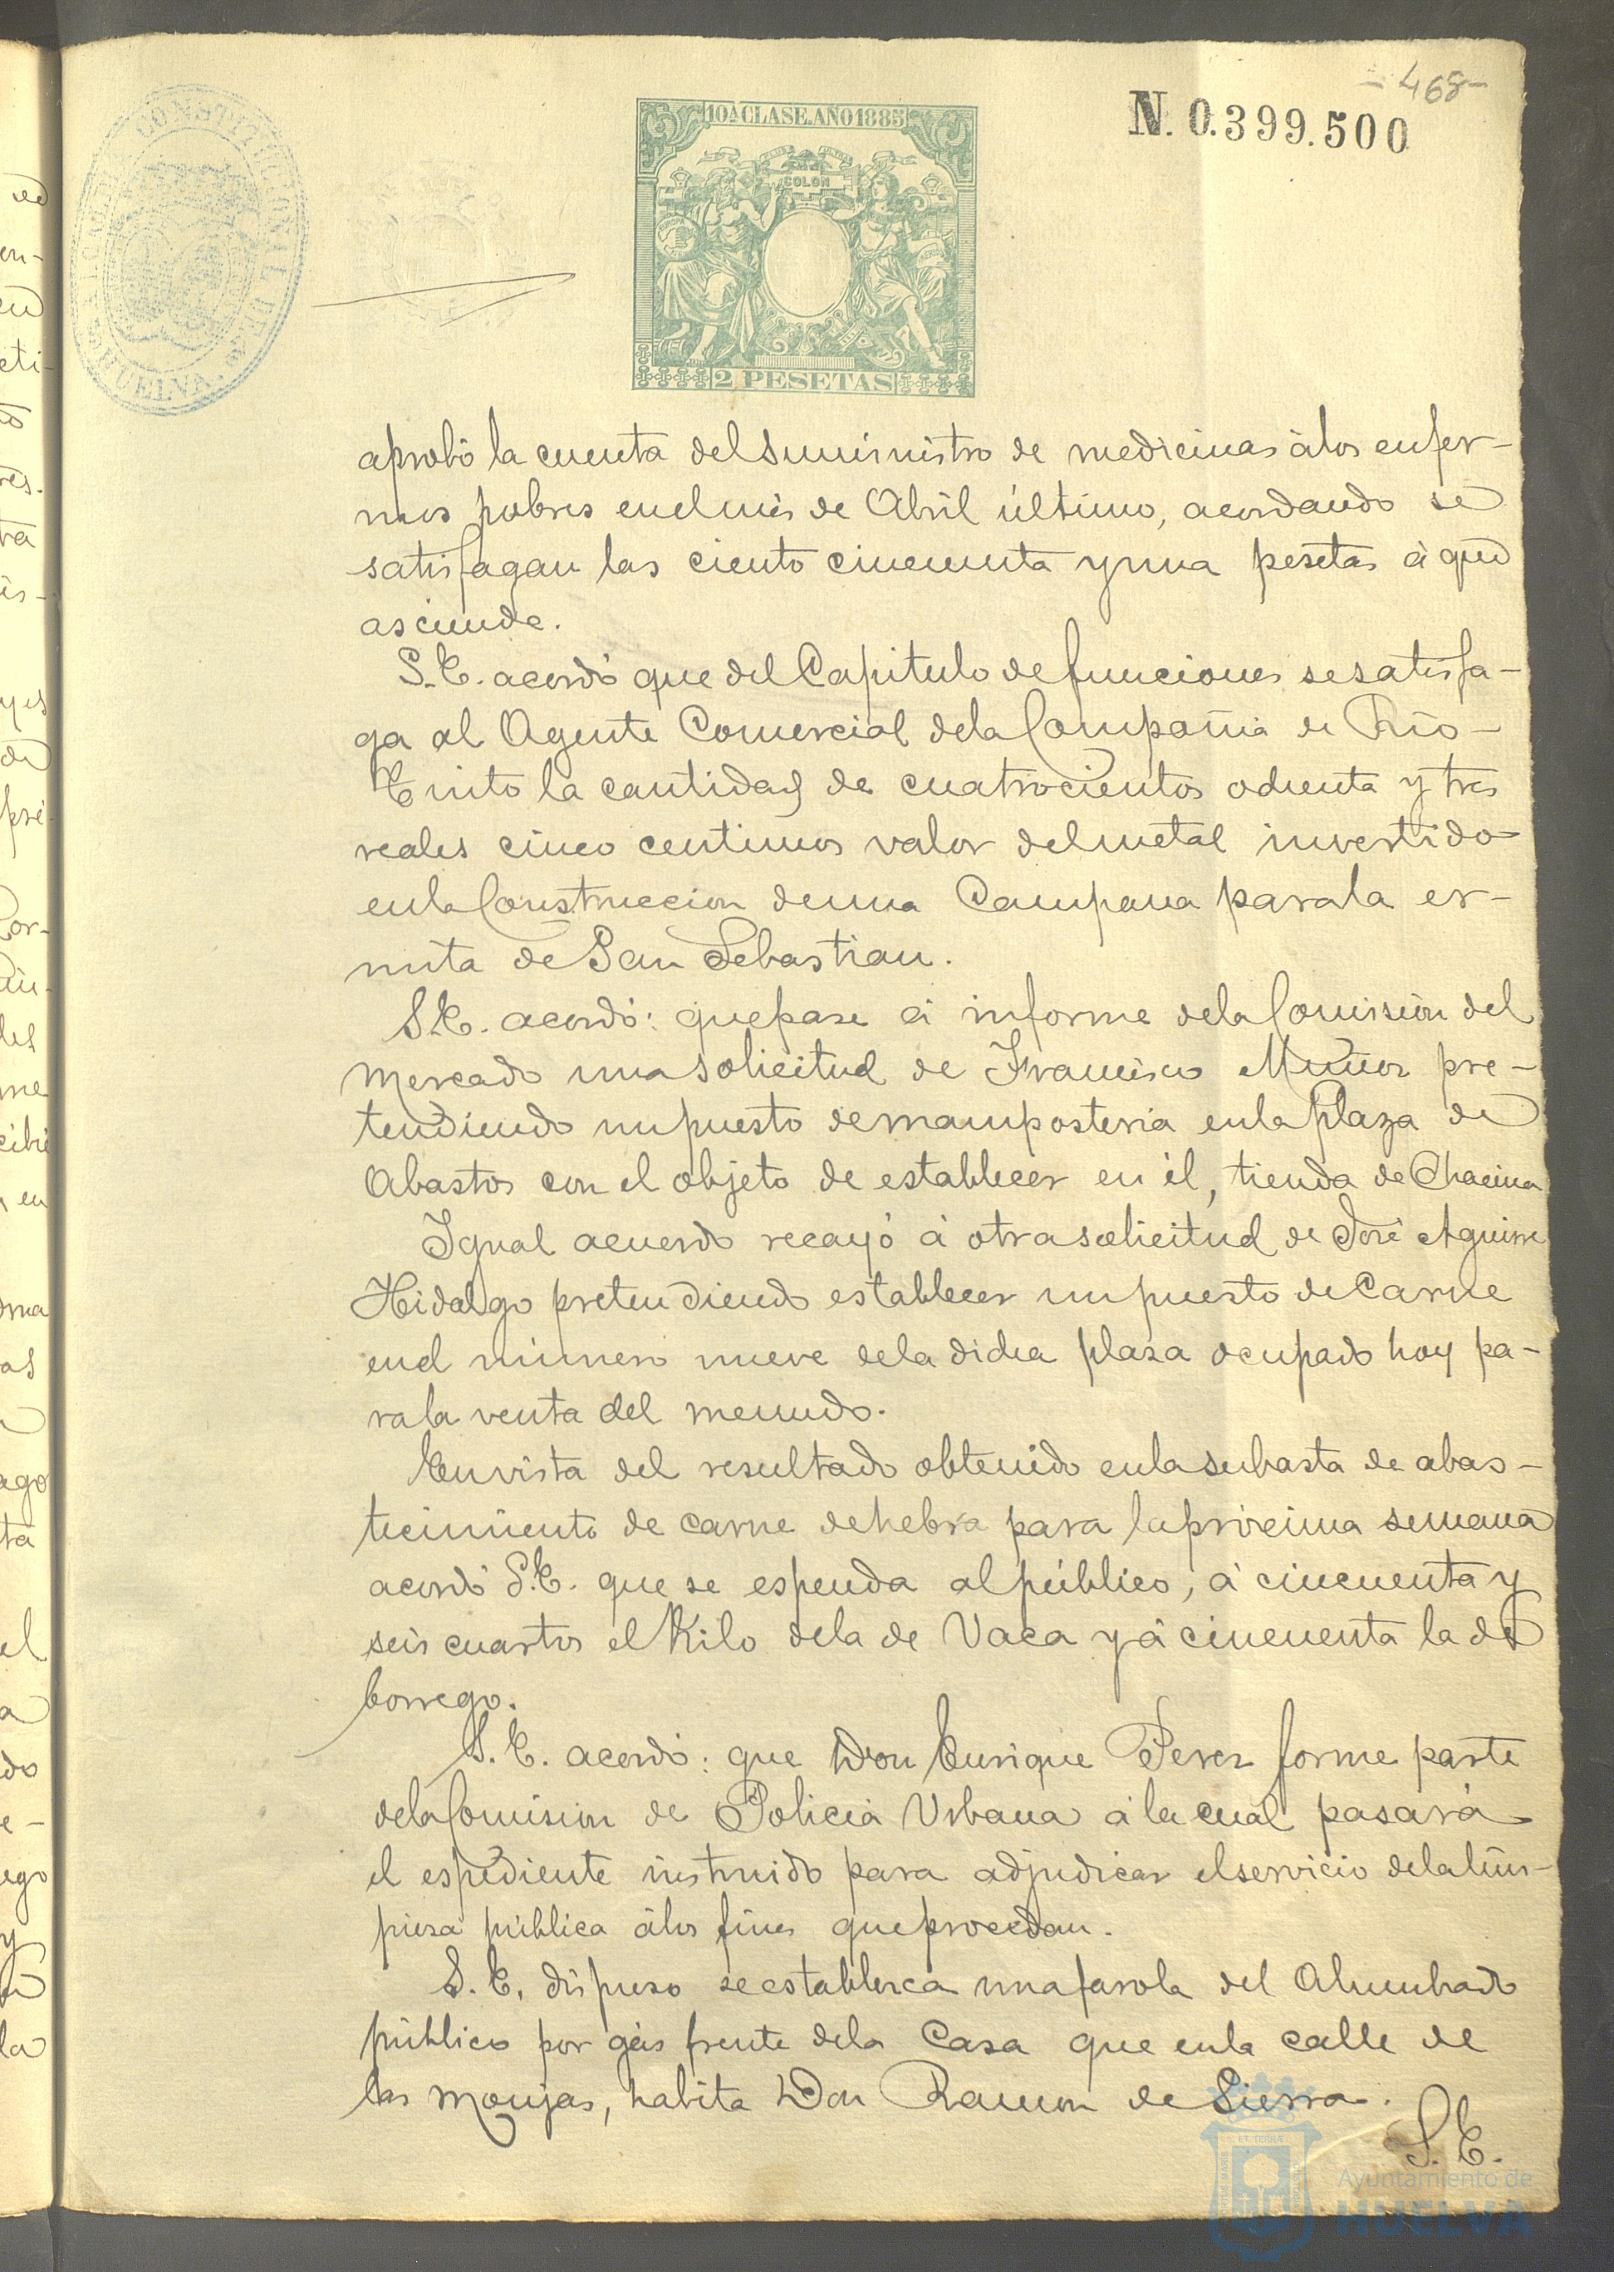 - 468 -
N. 0.399.500
10ª CLASE. AÑO 1885
COLON
2 PESETAS
CONSTITUCIONAL
HUELVA
aprobó la cuenta del suministro de medicinas á los enfer-
mos pobres en el mes de Abril último, acordando se
satisfagan las ciento cincuenta y una pesetas á que
asciende.
S.E. acordó que del Capitulo de funciones se satisfa-
ga al Agente Comercial de la Compañia de Rio-
Tinto la cantidad de cuatrocientos ochenta y tres
reales cinco centimos valor del metal invertido
en la Construccion de una Campana para la er-
mita de San Sebastian.
S.E. acordó: que pase á informe de la Comision del
Mercado una solicitud de Francisco Muñoz pre-
tendiendo un puesto de mamposteria en la plaza de
Abastos con el objeto de establecer en él, tienda de Chacina
Igual acuerdo recayó á otra solicitud de José Aguirre
Hidalgo pretendiendo establecer un puesto de Carne
en el número nueve de la dicha plaza ocupado hoy pa-
ra la venta del menudo.
En vista del resultado obtenido en la subasta de abas-
tecimiento de carne de hebra para la próxima semana
acordó S.E. que se espenda al público, á cincuenta y
seis cuartos el Kilo de la de Vaca y á cincuenta la de
borrego.
S.E. acordó: que Don Enrique Perez forme parte
de la Comision de Policia Urbana á la cual pasará
el espediente instruido para adjudicar el servicio de la lim-
pieza pública á los fines que procedan.
S.E. dispuso se establezca una farola del Alumbrado
público por gas frente de la Casa que en la calle de
las Monjas, habita Don Ramon de Sierra.
S.E.
Ayuntamiento de
HUELVA